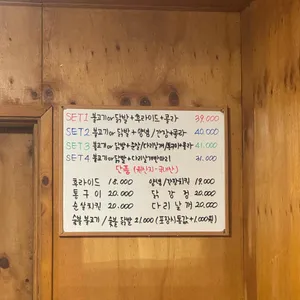 SET1 불고기or닭발+후라이드+콜라 39,000
SET2 불고기or 닭발 + 양념/간장+콜라 40,000
SET3 불고기or닭발+순살/다리날개/+콜라 41,000
SET4 불고기or닭발+다리날개반마리 31,000
단품
후라이드 18,000 양념/간장치킨 19,000
통구이 20,000 닭강정 20,000
순살치킨 20,000 다리날개 20,000
숯불불고기/숯불닭발 21,000 (포장시동값+1,000원)